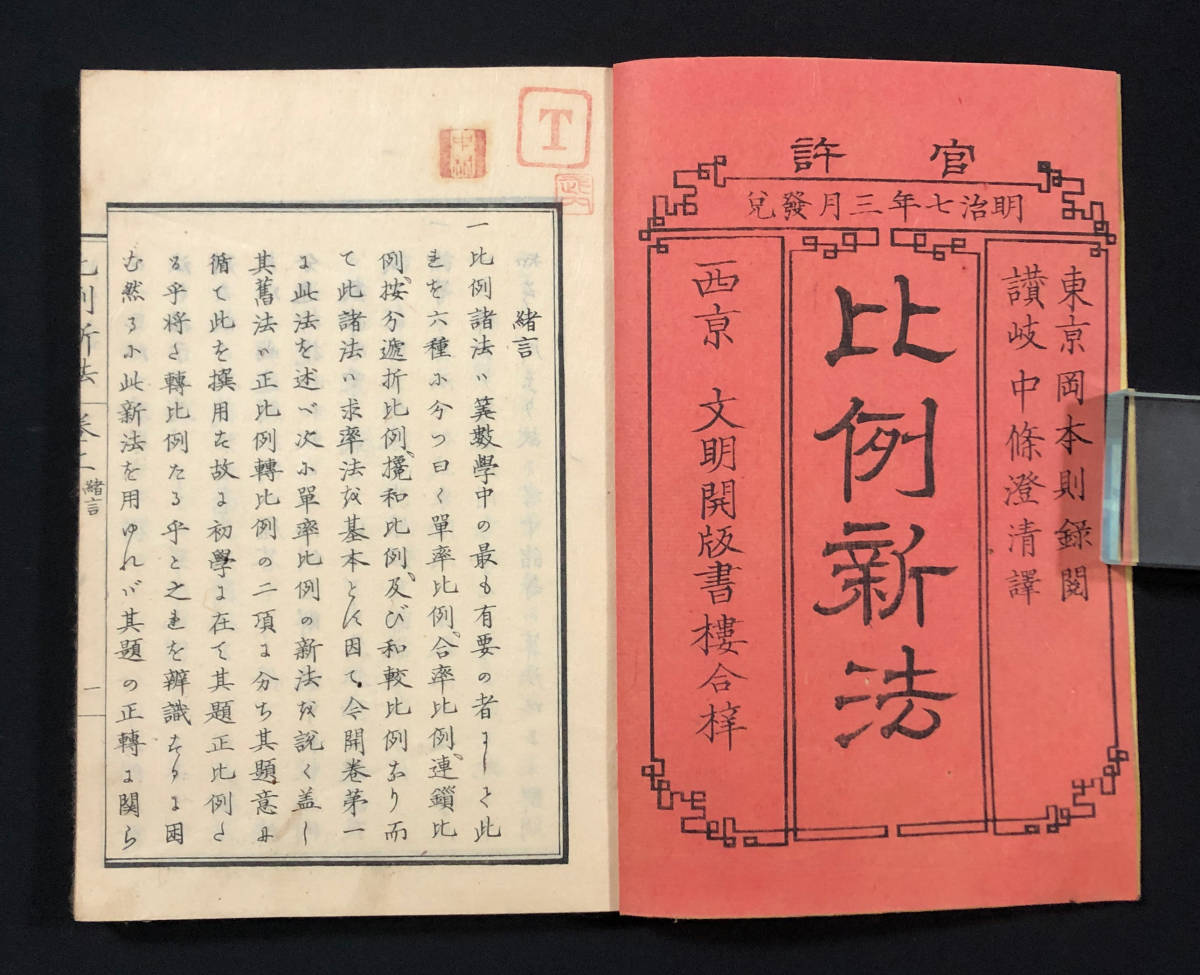 官許
明治七年三月發兌
東京岡本則錄閲
讃岐中條澄清譯
比例新法
西京　文明開版書樓合梓
T
中
緒言
一比例諸法ハ筭數學中の最も有要の者にして此
れを六種に分つ曰く單率比例、合率比例、連鎖比
例、按分遞折比例、攙和比例、及び和較比例なり而
て此諸法ハ求率法を基本とす因て今開卷第一
に此法を述べ次に單率比例の新法を説く盖し
其舊法ハ正比例轉比例の二項に分ち其題意に
循て此を撰用す故に初學に在て其題正比例た
る乎將た轉比例たる乎と之れを辨識するに困
む然るに此新法を用ゆれバ其題の正轉に関ら
比例新法　卷一　緒言　一